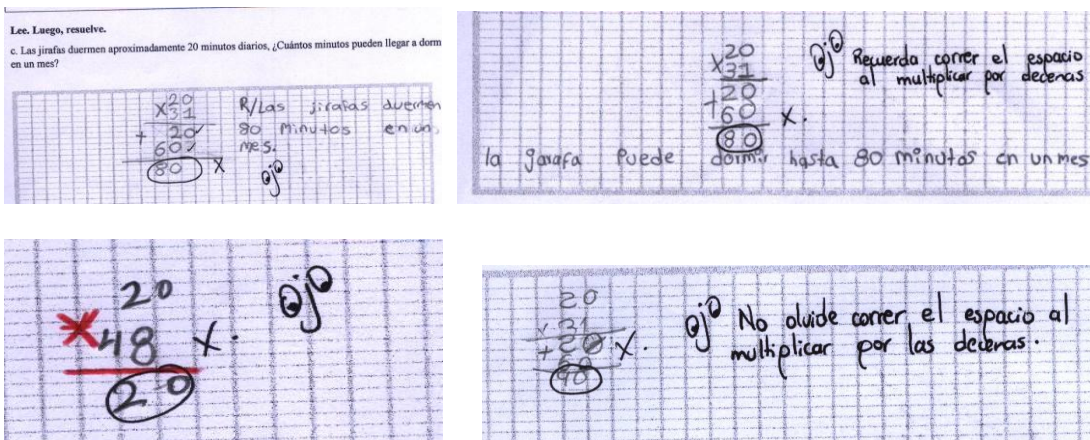 Lee. Luego, resuelve.
c. Las jirafas duermen aproximadamente 20 minutos diarios, ¿Cuántos minutos pueden llegar a dorm
en un mes?
20
x31
+ 20
60
80 x
R/Las jirafas duermen
80 minutos en un
mes.
ojo
x20
31
+20
60 x.
80
ojo Recuerda correr el espacio
al multiplicar por decenas
la garafa Puede dormir hasta 80 minutos en un mes
20
x48 x.
20
ojo
20
x31
+20 x.
ojo No olvide correr el espacio al
multiplicar por las decenas.